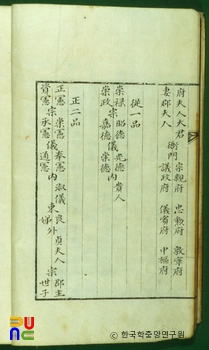 府夫人 大君
妻郡夫人 衙門 宗親府 議政府 忠勳府 儀賓府 敦寧府 中樞府
從一品
崇祿 宗昭德 儀光德 內貴人
崇政 宗嘉德 儀崇德
正二品
正憲 宗崇憲 儀奉憲 內淑儀 東良娣 外貞夫人 宗郡主
資憲 宗承憲 儀通憲 世子
한국학중앙연구원